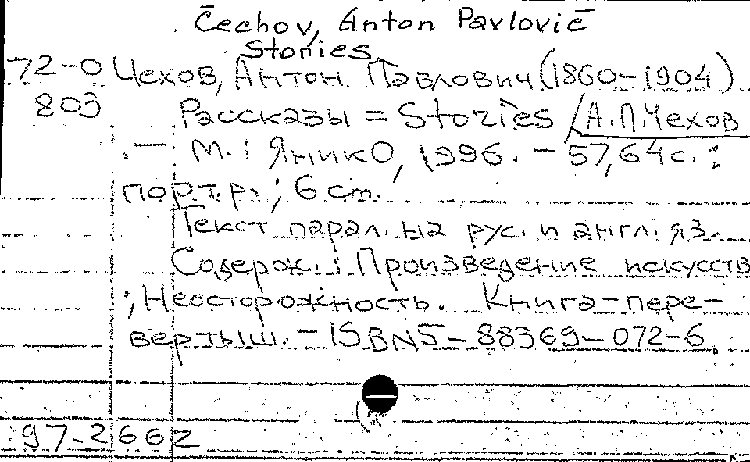 Čechov, Anton Pavlovič
Stories
72-0 Чехов, Антон Павлович (1860-1904)
803 Рассказы = Stories / А.П. Чехов
.- М.: ЯникО, 1996. - 57,64с.:
портр.; 6 cm.
Текст парал. на рус. и англ. яз.
Содерж.: Произведение искусств
; Неосторожность. Книга-пере-
вертыш. - ISBN 5-88369-072-6
97-2662